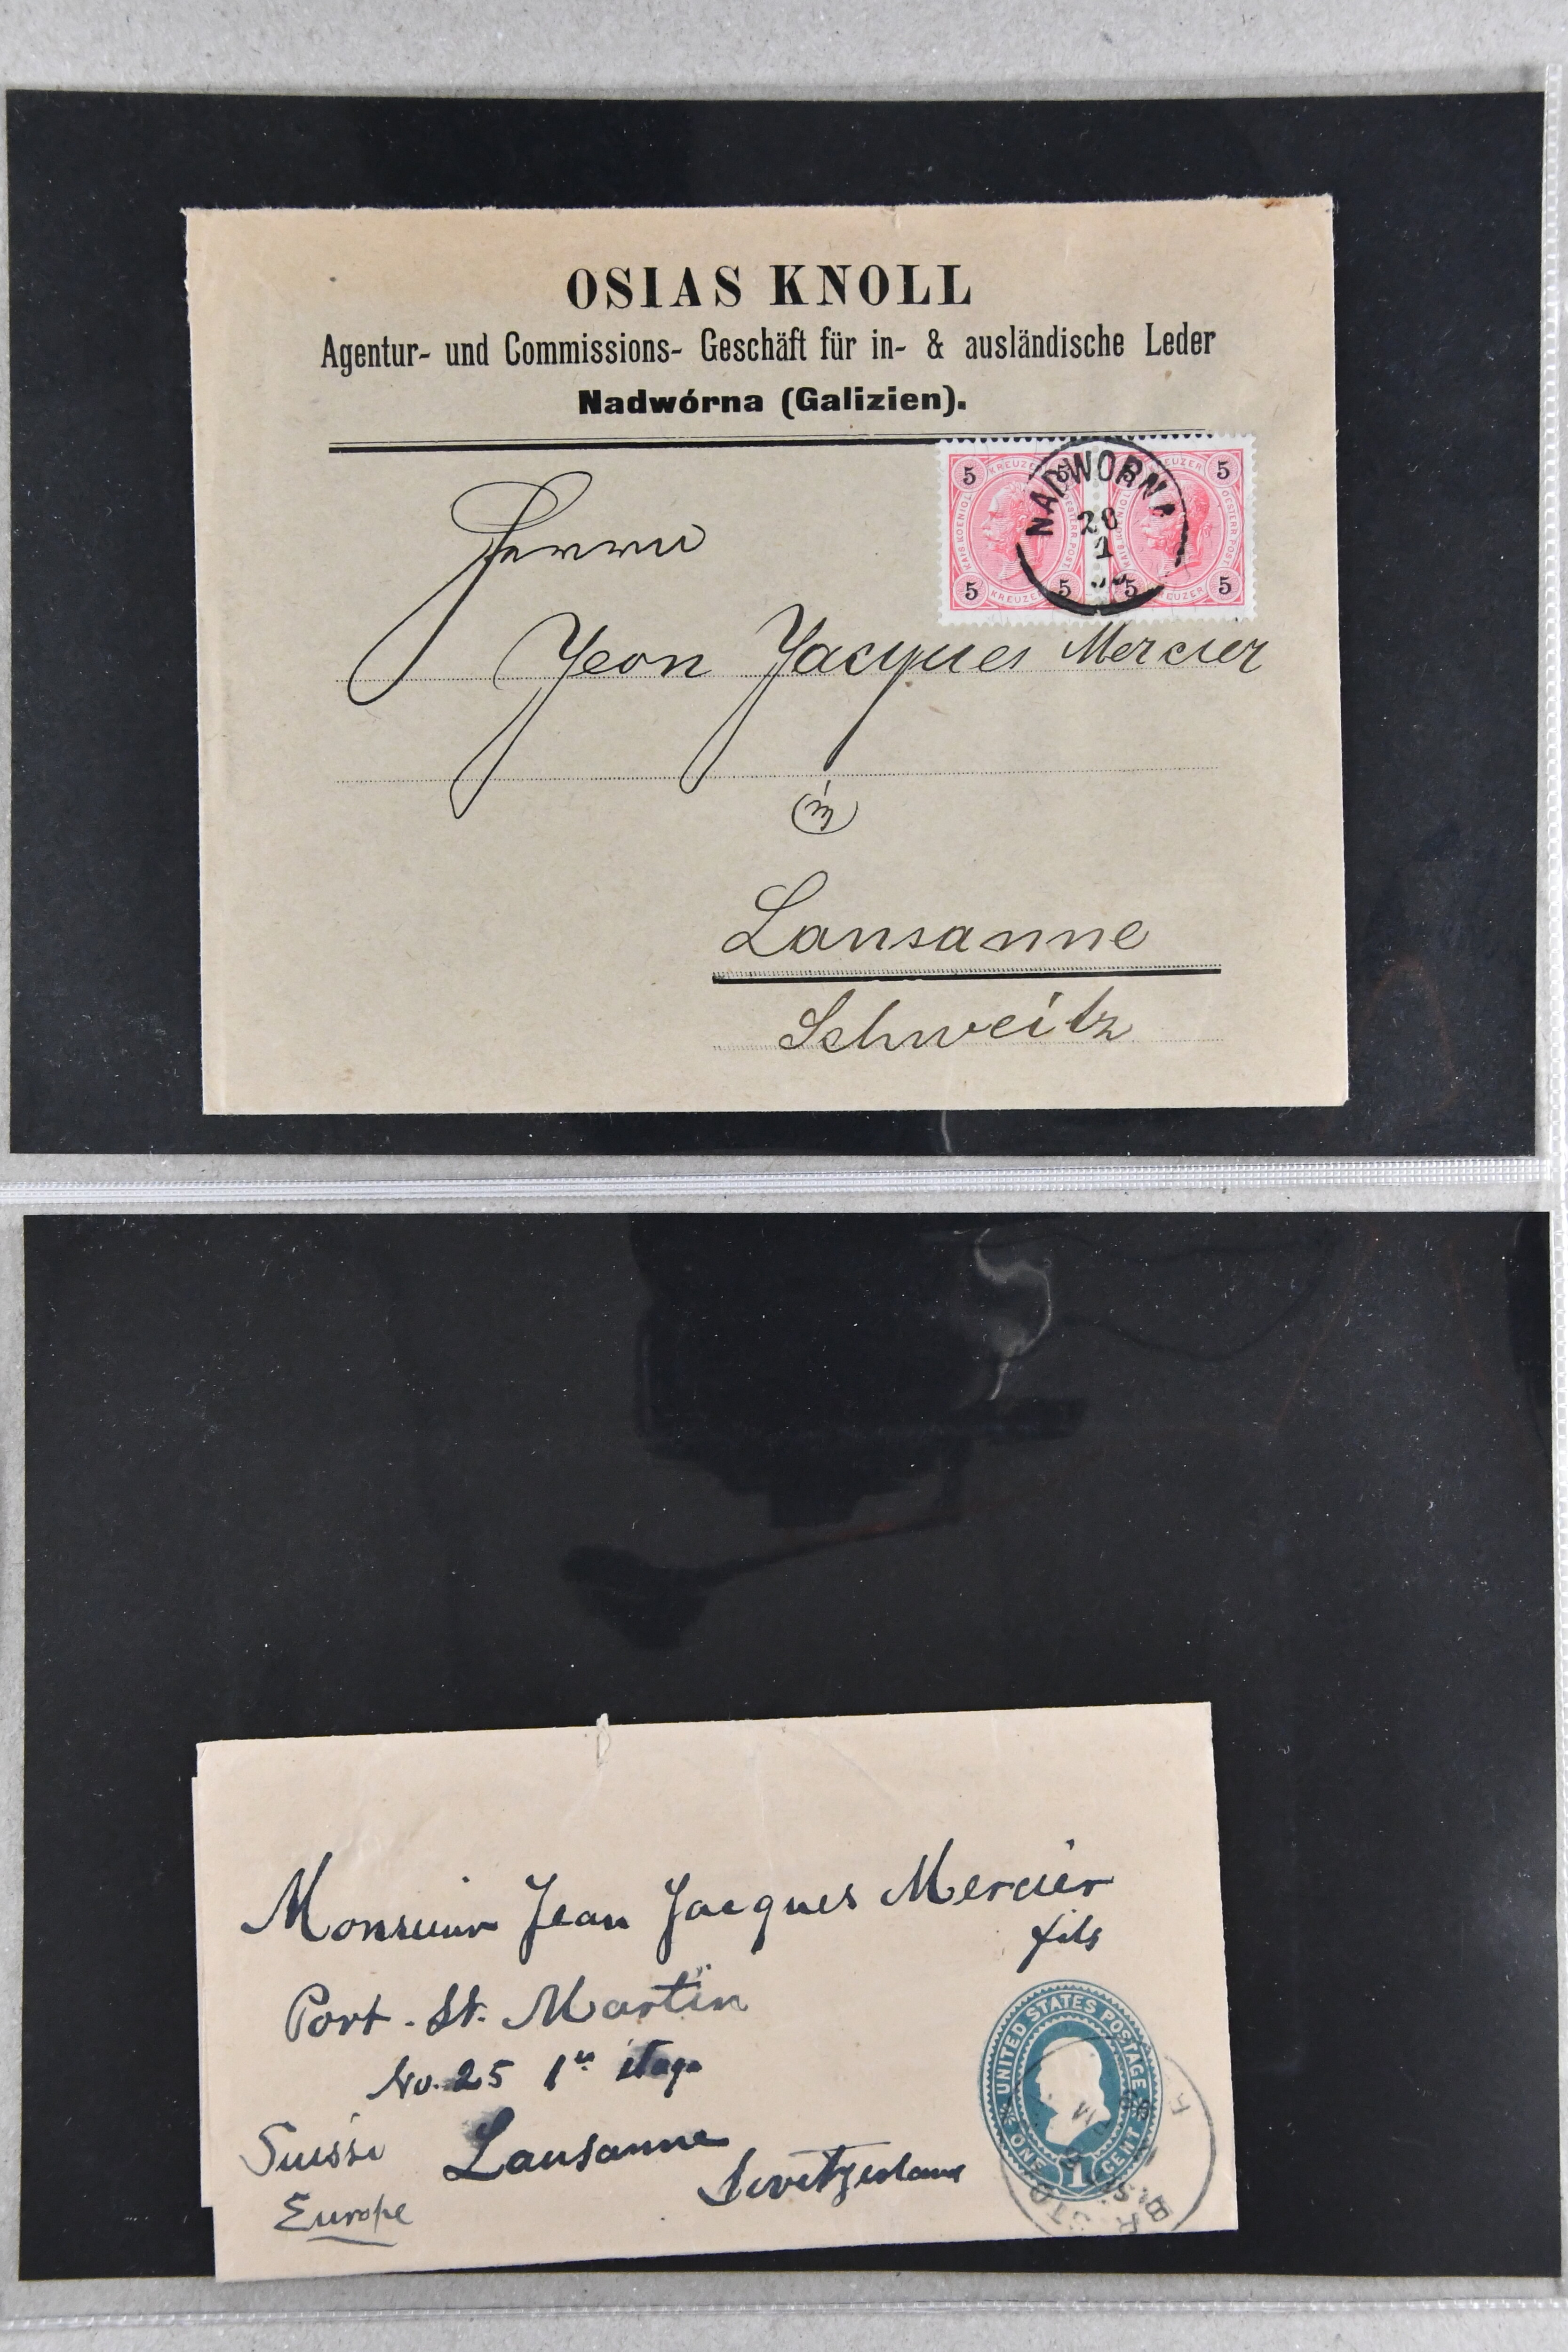 OSIAS KNOLL
Agentur- und Commissions- Geschäft für in- & ausländische Leder
Nadwórna (Galizien).
5 KREUZER 5 5 KREUZER 5
KAIS. KOENIGL. OESTERR. POST. KAIS. KOENIGL. OESTERR. POST.
5 KREUZER 5 5 KREUZER 5
NADWORNA
28
1
Herrn
Jean Jacques Mercier
in
Lausanne
Schweitz
Monsieur Jean Jacques Mercier
fils
Port. St. Martin
No. 25 1er étage
Suisse Lausanne Switzerland
Europe
UNITED STATES POSTAGE
ONE 1 CENT